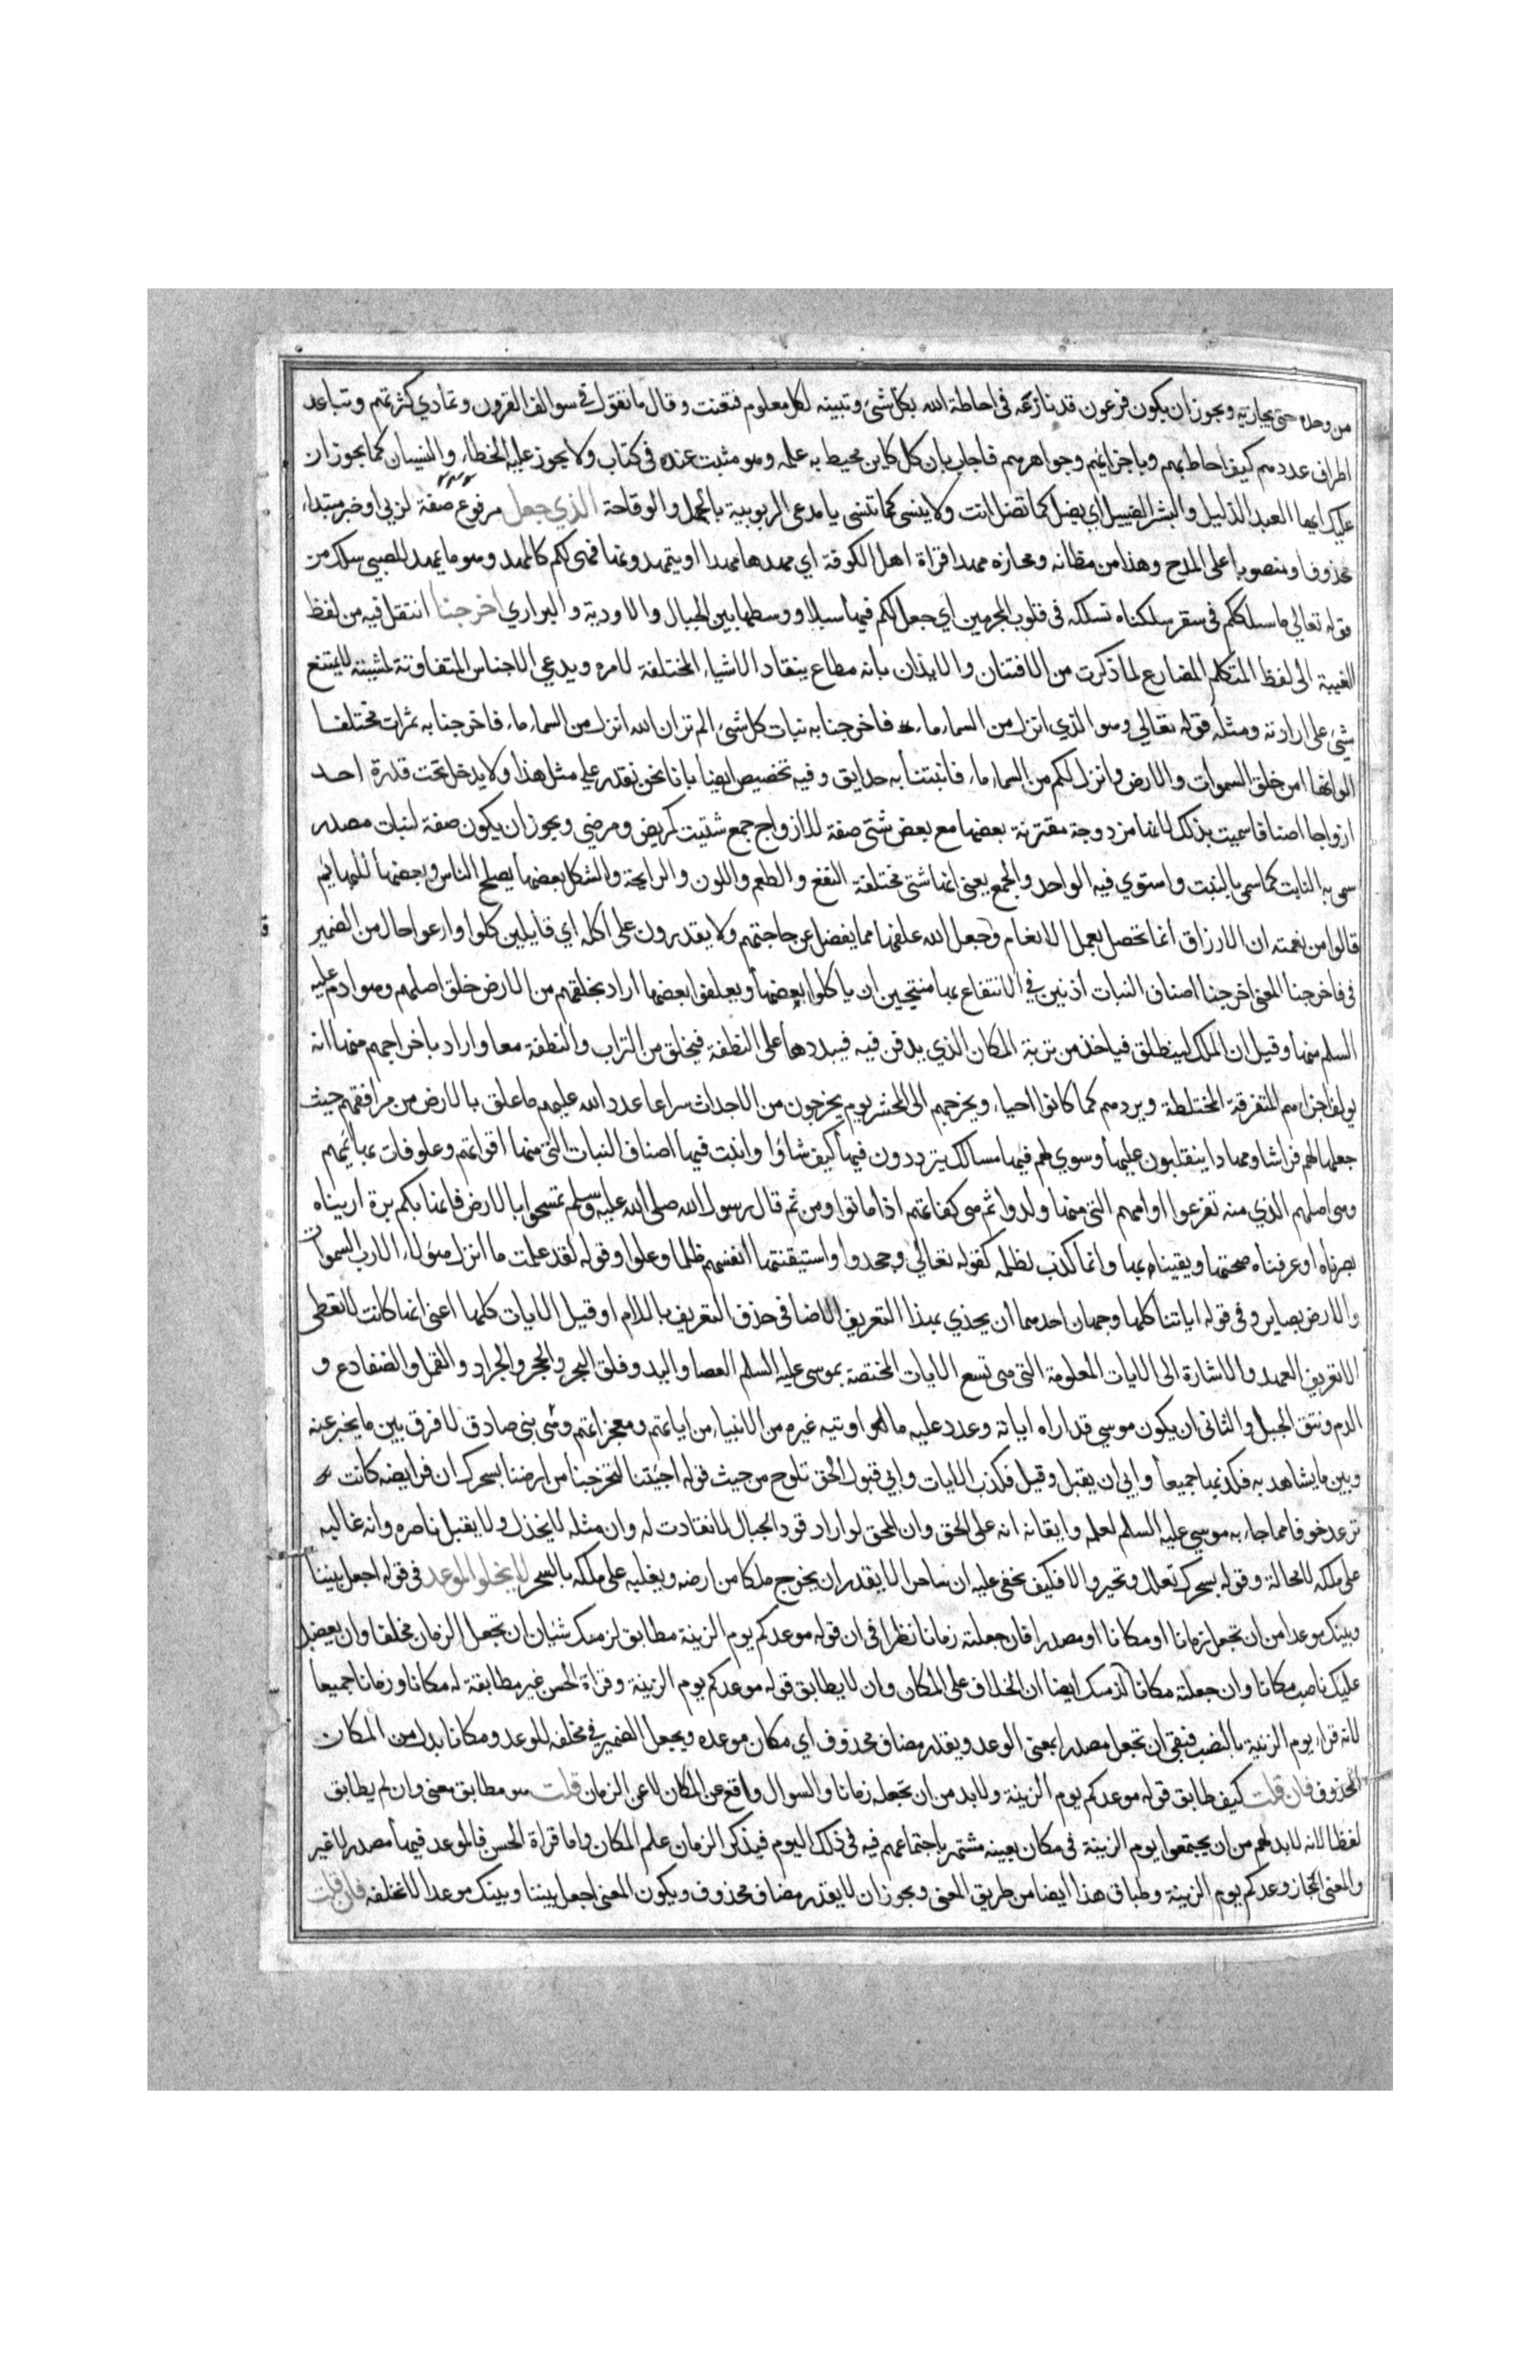 من وحده حتى يجاريه ويجوز ان يكون فرعون قد نازعه فى احاطة الله بكل شئ وتبيينه لكل معلوم فتعنت وقال ما تقول في سوالف القرون وتمادي كثرتهم وتباعد
اطراف عددهم كيف احاط بهم وباجزائهم وجواهرهم فاجاب بان كل كاين محيط به علمه وهو مثبت عنده فى كتاب ولا يجوز عليه الخطاء والنسيان كما يجوزان
عليك ايها العبد الذليل والبشر الضييل اي لا يضل كما تضل انت ولا ينسى كما تنسى يا مدعى الربوبية بالجهل والوقاحة الذي جعل مرفوع صفة لربي او خبر مبتداء
محذوف او منصوب على المدح وهذا من مظانه ومجازه مهدا قراة اهل الكوفة اي مهدها مهدا او يتمهدونها فهى لكم كالمهد وهو ما يمهد للصبى سلك من
قوله تعالي ما سلككم فى سقر سلكناه نسلكه فى قلوب المجرمين اي جعل لكم فيها سبلا ووسطها بين الجبال والاودية والبراري اخرجنا انتقل فيه من لفظ
الغيبة الى لفظ المتكلم المضارع لما ذكرت من الافتنان والايذان بانه مطاع ينقاد الاشياء المختلفة لامره ويدعي الاجناس المتفاوتة لمشيئته لا يمتنع
شئ على ارادته ومثله قوله تعالي وهو الذي انزل من السماء ماء فاخرجنا به نبات كل شئ الم تر ان الله انزل من السماء ماء فاخرجنا به ثمرات مختلفا
الوانها امن خلق السموات والارض وانزل لكم من السماء ماء فانبتنا به حدايق وفيه تخصيص ايضا بانا نحن نقدر على مثل هذا ولا يدخل تحت قدرة احد
ازواجا اصنافا سميت بذلك لانها مزدوجة مقترنة بعضها مع بعض شتى صفة للازواج جمع شتيت كريض ومرضي ويجوز ان يكون صفة لنبات مصدر
سمى به النابت كما سمى بالنبت واستوي فيه الواحد والجمع يعنى انها شتى مختلفة النفع والطعم واللون والرايحة والشكل بعضها يصلح للناس وبعضها للبهايم
قالوا من نعمته ان الارزاق انما تحصل بعمل الانعام وجعل الله علفها مما يفضل عن حاجتهم ولا يقدرون على اكله اي قايلين كلوا وارعوا حال من الضمير
فى فاخرجنا المعنى اخرجنا اصناف النبات اذنين في الانتفاع بها مبيحين ان ياكلوا بعضها ويعلفوا بعضها اراد بخلقهم من الارض خلق اصلهم وهو ادم عليه
السلم منها وقيل ان الملك لينطلق فياخذ من تربة المكان الذي يدفن فيه فيبددها على النطفة فيخلق من التراب والنطفة معا واراد باخراجهم منها انه
يولف اجزاءهم المتفرقة المختلطة ويردهم كما كانوا احياء ويخرجهم الى المحشر يوم يخرجون من الاجداث سراعا عدد الله عليهم ما علق بالارض من مرافقهم حيث
جعلها لهم فراشا ومهادا يتقلبون عليها وسوي لهم فيها مسالك يترددون فيها كيف شاؤا وانبت فيها اصناف النبات التى منها اقواتهم وعلوفات بهائمهم
وهى اصلهم الذي منه تفرعوا او امهم التى منها ولدوا ثم هى كفاتهم اذا ماتوا ومن ثم قال رسول الله صلى الله عليه وسلم تمسحوا بالارض فانها بكم برة اريناه
بصرناه او عرفناه صحتها ويقيناه بها وانما كذب لظلمه كقوله تعالي وجحدوا واستيقنتها انفسهم ظلما وعلوا وقوله لقد علمت ما انزل هؤلاء الا رب السموات
والارض بصاير وفى قوله اياتنا كلها وجهان احدهما أن يحذي بهذا التعريف الاضافى حذو التعريف باللام لو قيل الايات كلها اعنى انها كانت لا تعطى
الا تعريف العهد والاشارة الى الايات المعلومة التى هى تسع الايات المختصة بموسى عليه السلم العصا واليد وفلق البحر والحجر والجراد والقمل والضفادع و
الدم ونتق الجبل والثانى ان يكون موسي قد اراه اياته وعدد عليه ما اوتيه غيره من الانبياء من اياتهم ومعجزاتهم وهى نبى صادق لا فرق بين ما يخبر عنه
وبين ما يشاهد به فكذبها جميعا وابي ان يقبل وقيل فكذب الايات وابي قبول الحق تلوح من حيث قوله اجئتنا لتخرجنا من ارضنا بسحرك ان فرايضه كانت
ترعد خوفا مما جاء به موسي عليه السلم لعلمه وايقانه انه على الحق وان المحق لو اراد قود الجبال لانقادت له وان مثله لا يخذل ولا يقبل ناصره وانه غالبه
على ملكه لا محالة وقوله بسحرك تعلل وتحير والا فكيف يخفى عليه ان ساحرا لا يقدر ان يخرج ملكا من ارضه ويغلبه على ملكه بالسحر لا يخلو الموعد فى قوله اجعل بيننا
وبينك موعدا من ان تجعل زمانا او مكانا او مصدرا فان جعلته زمانا نظرا فى ان قوله موعدكم يوم الزينة مطابق لزمك شيان ان تجعل الزمان مخلفا وان يعضل
عليك ناصب مكانا وان جعلته مكانا لزمك ايضا ان الخلاف على المكان وان لا يطابق قوله موعدكم يوم الزينة وقراة الحسن غير مطابقة له مكانا وزمانا جميعا
لانه قراء يوم الزينة بالنصب فبقى ان تجعل مصدرا بمعنى الوعد ويقدر مضاف محذوف اي مكان موعده ويجعل الضمير في نخلفه للموعد ومكانا بدل من المكان
المحذوف فان قلت كيف طابق قوله موعدكم يوم الزينة ولا بد من ان تجعله زمانا والسوال واقع عن المكان لا عن الزمان قلت هو مطابق معنى وان لم يطابق
لفظا لانه لا بد لهم من ان يجتمعوا يوم الزينة فى مكان بعينه مشتهر باجتماعهم فيه فى ذلك اليوم فبذكر الزمان علم المكان واما قراة الحسن فالموعد فيها مصدر لا غير
والمعنى انجاز وعدكم يوم الزينة وطباق هذا ايضا من طريق المعنى ويجوز ان لا يقدر مضاف محذوف ويكون المعنى اجعل بيننا وبينك موعدا لا نخلفه فان قلت